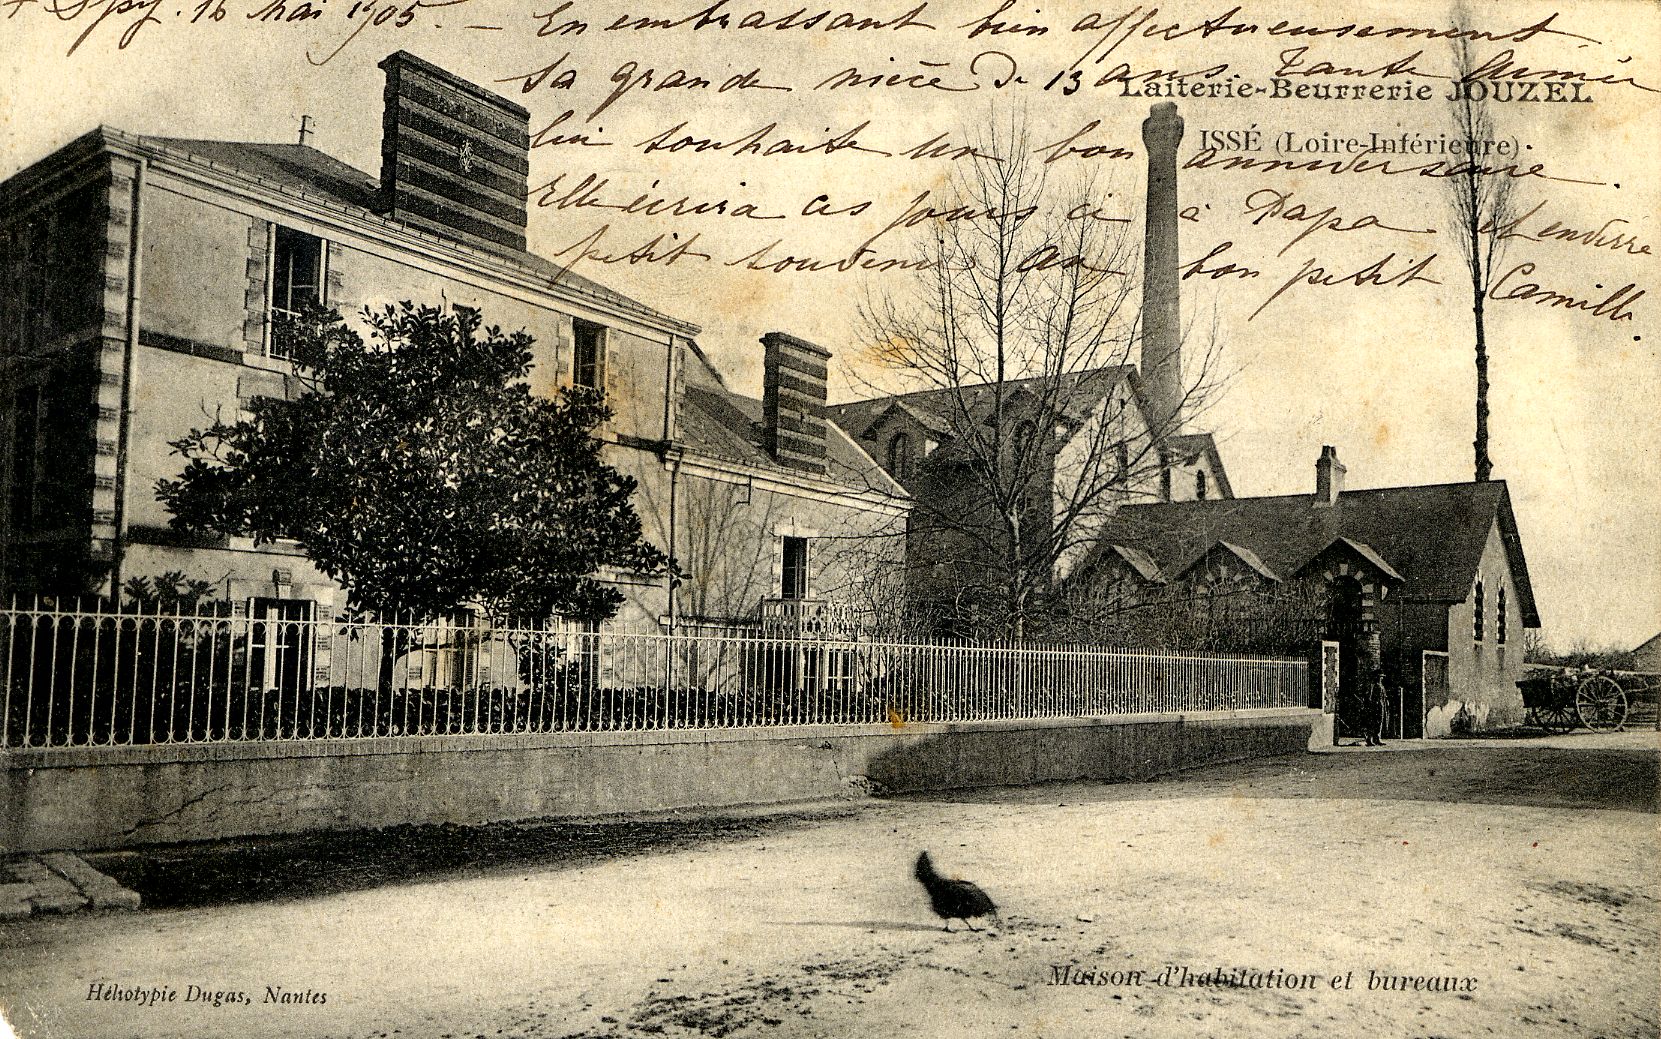 Spy. 16 Mai 1905. — En embrassant bien affectueusement
sa grande nièce de 13 ans. Tante Aimée
lui souhaite un bon anniversaire.
Elle écrira ces jours ci à Papa et enverra
petit souvenir au bon petit Camille.
Laiterie-Beurrerie JOUZEL
ISSÉ (Loire-Inférieure)
Héliotypie Dugas, Nantes
Maison d'habitation et bureaux